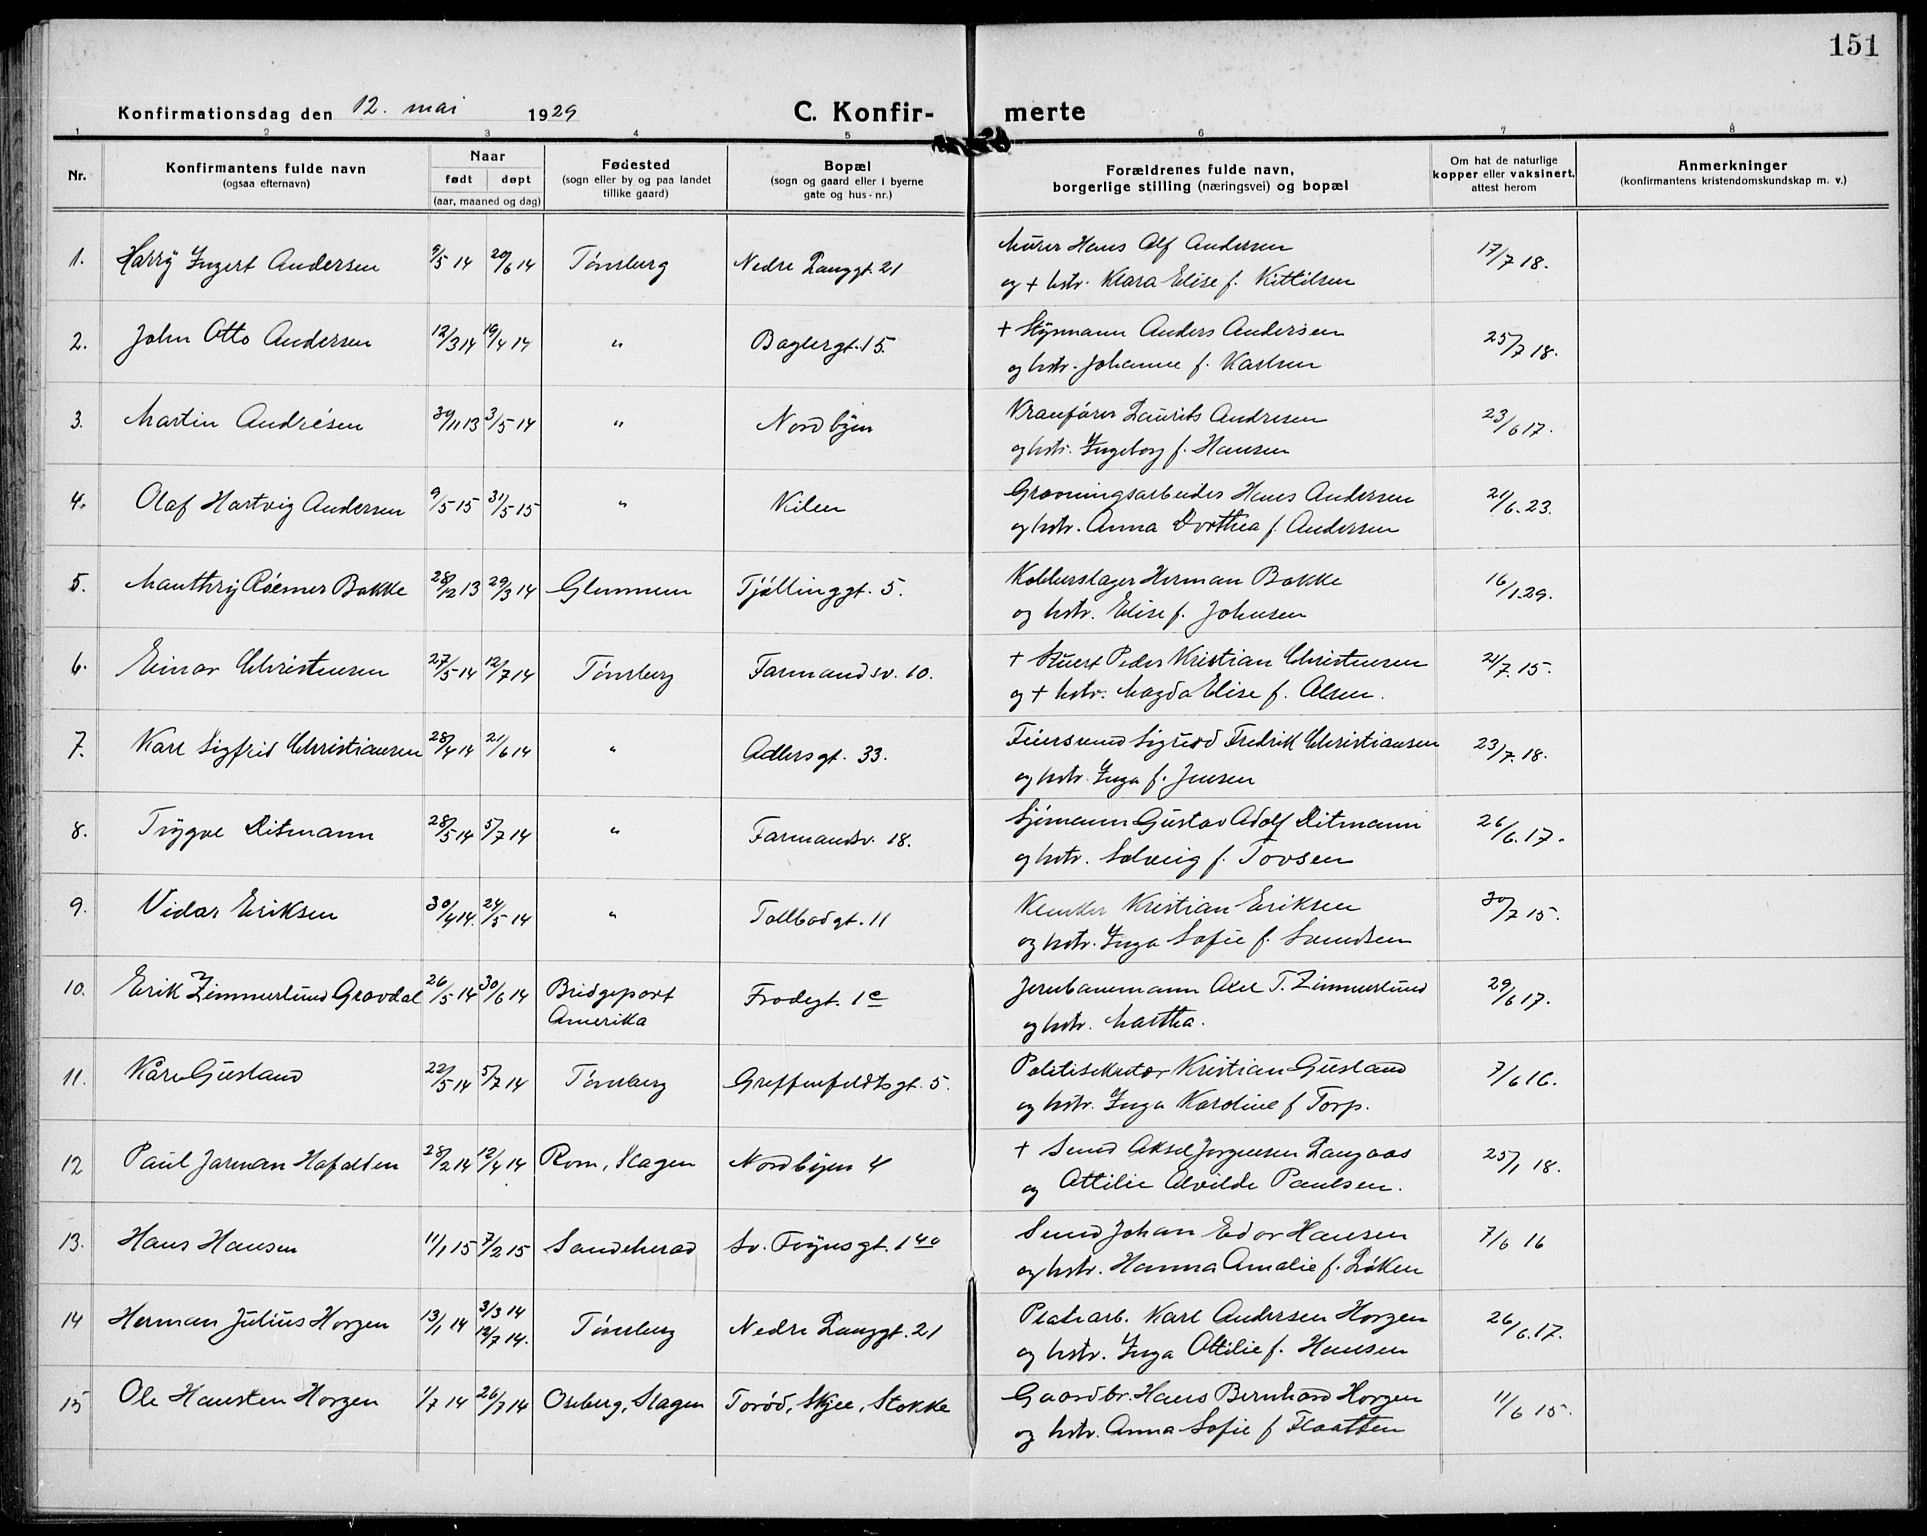 151
Konfirmationsdag den 12. mai 1929 C. Konfir- merte
1 2 3 4 5 6 7 8
Nr. Konfirmantens fulde navn (ogsaa efternavn) Naar født døpt (aar, maaned og dag) Fødested (sogn eller by og paa landet tillike gaard) Bopæl (sogn og gaard eller i byerne gate og hus-nr.) Forældrenes fulde navn, borgerlige stilling (næringsvei) og bopæl Om hat de naturlige kopper eller vaksinert, attest herom Anmerkninger (konfirmantens kristendomskundskap m. v.)
1. Harry Ingert Andersen 9/5 14 20/6 14 Tønsberg Nedre Langgt. 21 Murer Hans Alf Andersen 17/7 18.
og + hstr. Klara Elise f. Kittilsen
2. John Otto Andersen 12/3 14 19/4 14 " Baglergt. 15. + Styrmann Anders Andersen 25/7 18.
og hstr. Johanne f. Karlsen
3. Martin Andrésen 30/11 13 3/5 14 " Nordbyen Kranfører Laurits Andresen 23/6 17.
og hstr. Ingeborg f. Hansen
4. Olaf Hartvig Andersen 9/5 15 31/5 15 " Kilen Gravningsarbeider Hans Andersen 21/6. 23.
og hstr. Anna Dorthea f. Andersen
5. Manthry Røemer Bakke 28/12 13 29/3 14 Glemmen Tjøllinggt. 5. Kobberslager Herman Bakke 16/1 29.
og hstr. Elise f. Johnsen
6. Einar Christensen 27/5 14 12/7 14 Tønsberg Farmandsv. 10. + Stuert Peder Kristian Christensen 21/7. 15.
og + hstr. Magda Elise f. Olsen.
7. Karl Sigfrid Christiansen 28/4 14 21/6 14 " Adlersgt. 33. Feiersvend Sigurd Fredrik Christiansen 23/7. 18.
og hstr. Inga f. Jensen
8. Trygve Ditmann 28/5 14 5/7 14 " Farmandsv. 18. Sjømann Gustav Adolf Ditmann 26/6. 17.
og hstr. Solveig f. Tovsen
9. Vidar Eriksen 30/4 14. 24/5 14 " Tollbodgt. 11 Kristian Eriksen 30/7 15.
og hstr. Inga Sofie f. Svendsen
10. Erik Zimmerlund Gravdal 26/5 14 30/6 14 Bridgeport Amerika Frodegt. 1c Jernbanemann Axel T. Zimmerlund 29/6 17.
og hstr. Martha.
11. Kåre Gusland 22/5 14 5/7 14 Tønsberg Greffenfeldtsgt. 5. Politisekretær Kristian Gusland 7/6 16.
og hstr. Inga Karoline f Torp.
12 Paul Jarman Hafalden 28/2 14 12/4 14 Rom, Slagen Nordbyen 4 + Smed Aksel Jørgensen Langaas 25/1 18.
og Ottilie Alvilde Paulsen.
13. Hans Hansen 11/1 15 7/2 15 Sandeherad Sv. Foynsgt. 1 40 Smed Johan Edor Hansen 7/6 16
og hstr. Hanna Amalie f. Løken
14 Herman Julius Horgen 13/1 14 3/3 14 12/7 14. Tønsberg Nedre Langgt. 21 Platearb. Karl Andersen Horgen 26/6. 17.
og hstr. Inga Ottilie f. Hansen
15 Ole Hansten Horgen 1/7 14 26/7 14 Oseberg, Slagen Torød, Skjee, Stokke Gaardbr. Hans Bernhard Horgen 11/6 15.
og hstr. Anna Sofie f Flaatten